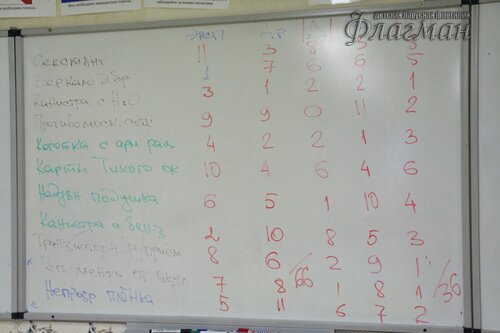 детская парусная флотилия
Флагман
Эксп Др Д
Секстант 11 3 3 3 3
Зеркало д/бр 1 7 6 6 5
Канистра с H2O 3 1 2 2 1
9 9 0 11 2
Коробка с арм рац 4 2 2 1 3
Карты Тихого ок 10 4 6 4 6
Надувн подушка 6 5 1 10 4
Канистра с бенз 2 10 8 5 3
8 6 /66 2 9 1
7 8 1 8 1 /36
Непрозр плёнка 5 11 6 7 2